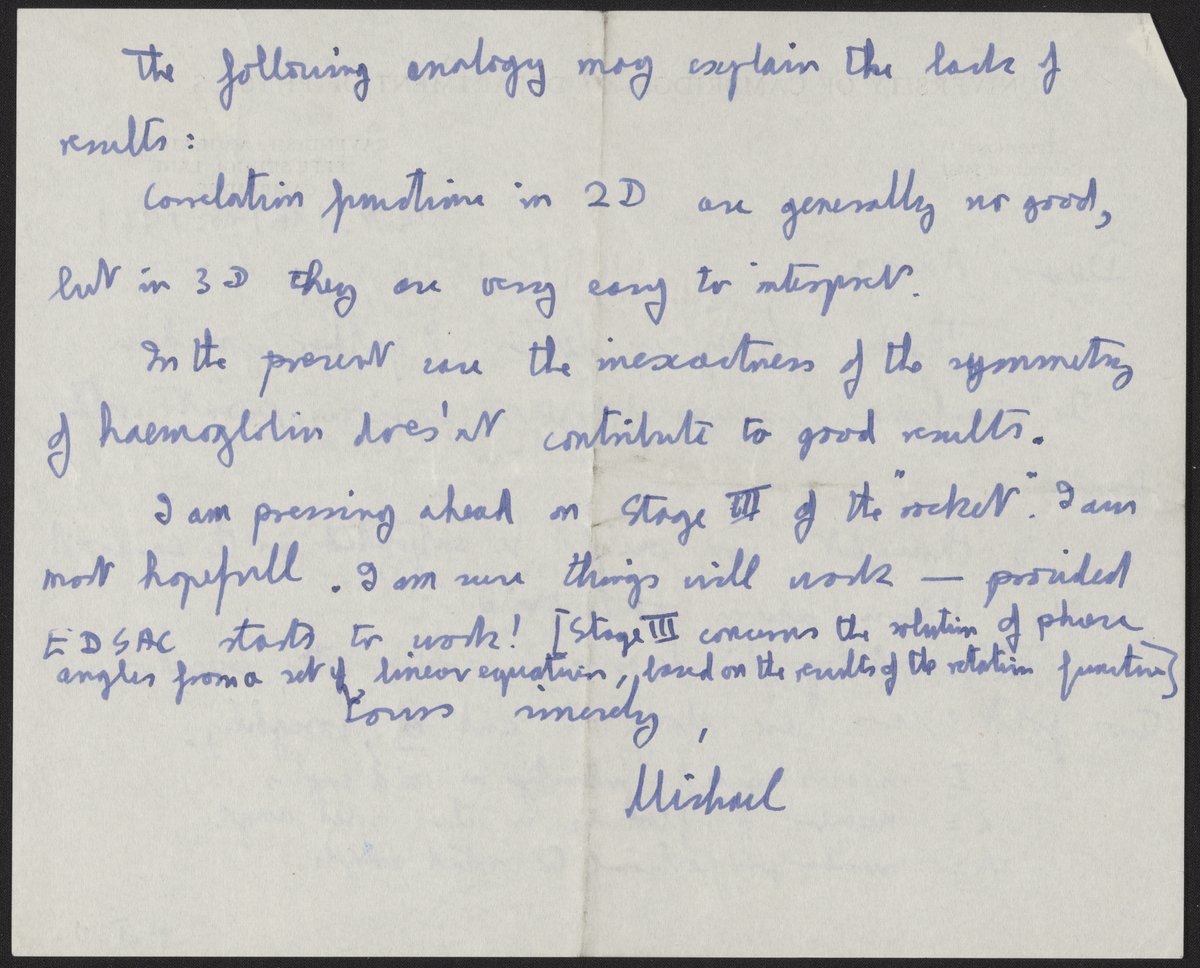 The following analogy may explain the lack of
results:
Correlation functions in 2D are generally no good,
but in 3D they are very easy to interpret.
In the present case the inexactness of the symmetry
of haemoglobin does'nt contribute to good results.
I am pressing ahead on Stage III of the "rocket". I am
most hopefull. I am sure things will work — provided
EDSAC starts to work! [Stage III concerns the solution of phase
angles from a set of linear equations, based on the results of the rotation function]
Yours sincerely,
Michael